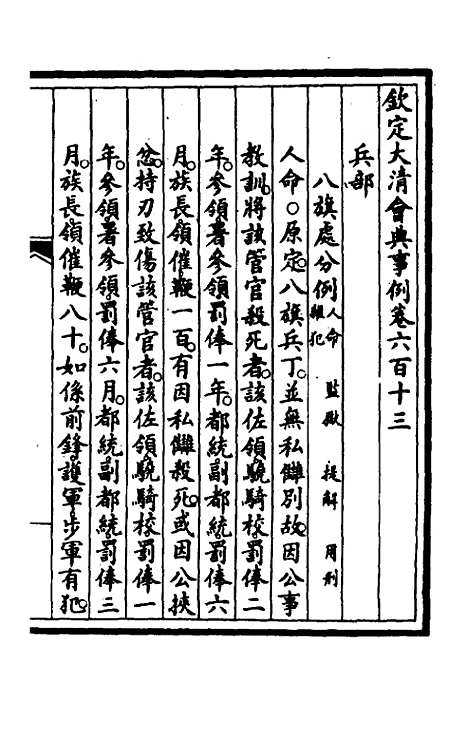 欽定大清會典事例卷六百十三
兵部
八旗處分例 人命 雜犯 監獄 提解 用刑
人命○原定八旗兵丁。並無私讎別故。因公事
教訓。將該管官殺死者。該佐領驍騎校罰俸二
年。參領署參領罰俸一年。都統副都統罰俸六
月。族長領催鞭一百。有因私讎殺死。或因公挾
忿。持刃致傷該管官者。該佐領驍騎校罰俸一
年。參領署參領罰俸六月。都統副都統罰俸三
月。族長領催鞭八十。如係前鋒護軍步軍有犯。